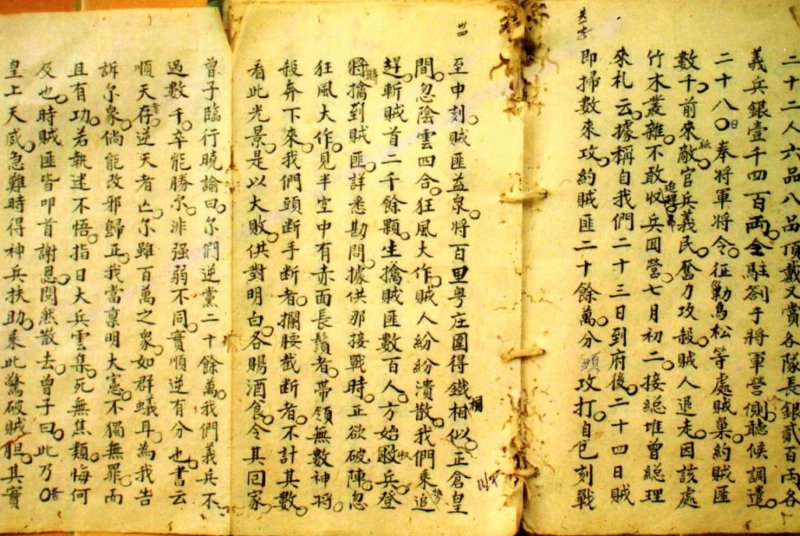 二十二人六品八品頂戴又賞各隊長銀貳百両各
義兵銀壹千四百両仝駐劄于將軍營側聽候調遣
二十八日奉將軍將令征勦鳥松等處賊巢約賊匪
數千前來敵官兵義民奮力攻殺賊人退走因該處
竹木叢雜不敢收兵囬營七月初二接総堆曾総理
來札云據稱自我們二十三日到府後二十四日賊
即掃數來攻約賊匪二十餘萬分頭攻打自刻戰
至申刻賊匪益將百里粤庄圍得鐵桶相似正倉皇
間忽陰雲四合狂風大作賊人紛紛潰散我們乘勢追
趕斬賊首二千餘顆生擒賊匪數百人方始收兵登
時將擒到賊匪詳悉勘問據供那接戰時正欲破陣忽
狂風大作見半空中有赤面長鬚者帶領無數神將
殺奔下來我們頭断手断者攔腰截断者不計其數
看此光景是以大敗供對明白各賜酒食令其回家
曾子臨行曉諭曰尔們逆黨二十餘萬我們義兵不
過數千卒能勝尔非强弱不同實順逆有分也書云
順天存逆天者亡尔雖百萬之衆如群蟻耳為我告
訴尔衆倘能改邪歸正我當禀明大憲不獨無罪而
且有功若執迷不悟指日大兵雲集死無焦類悔何
及也時賊匪皆叩首謝恩閧然散去曾子曰此乃
皇上天威急難時得神兵扶助乘此驚破賊胆其實